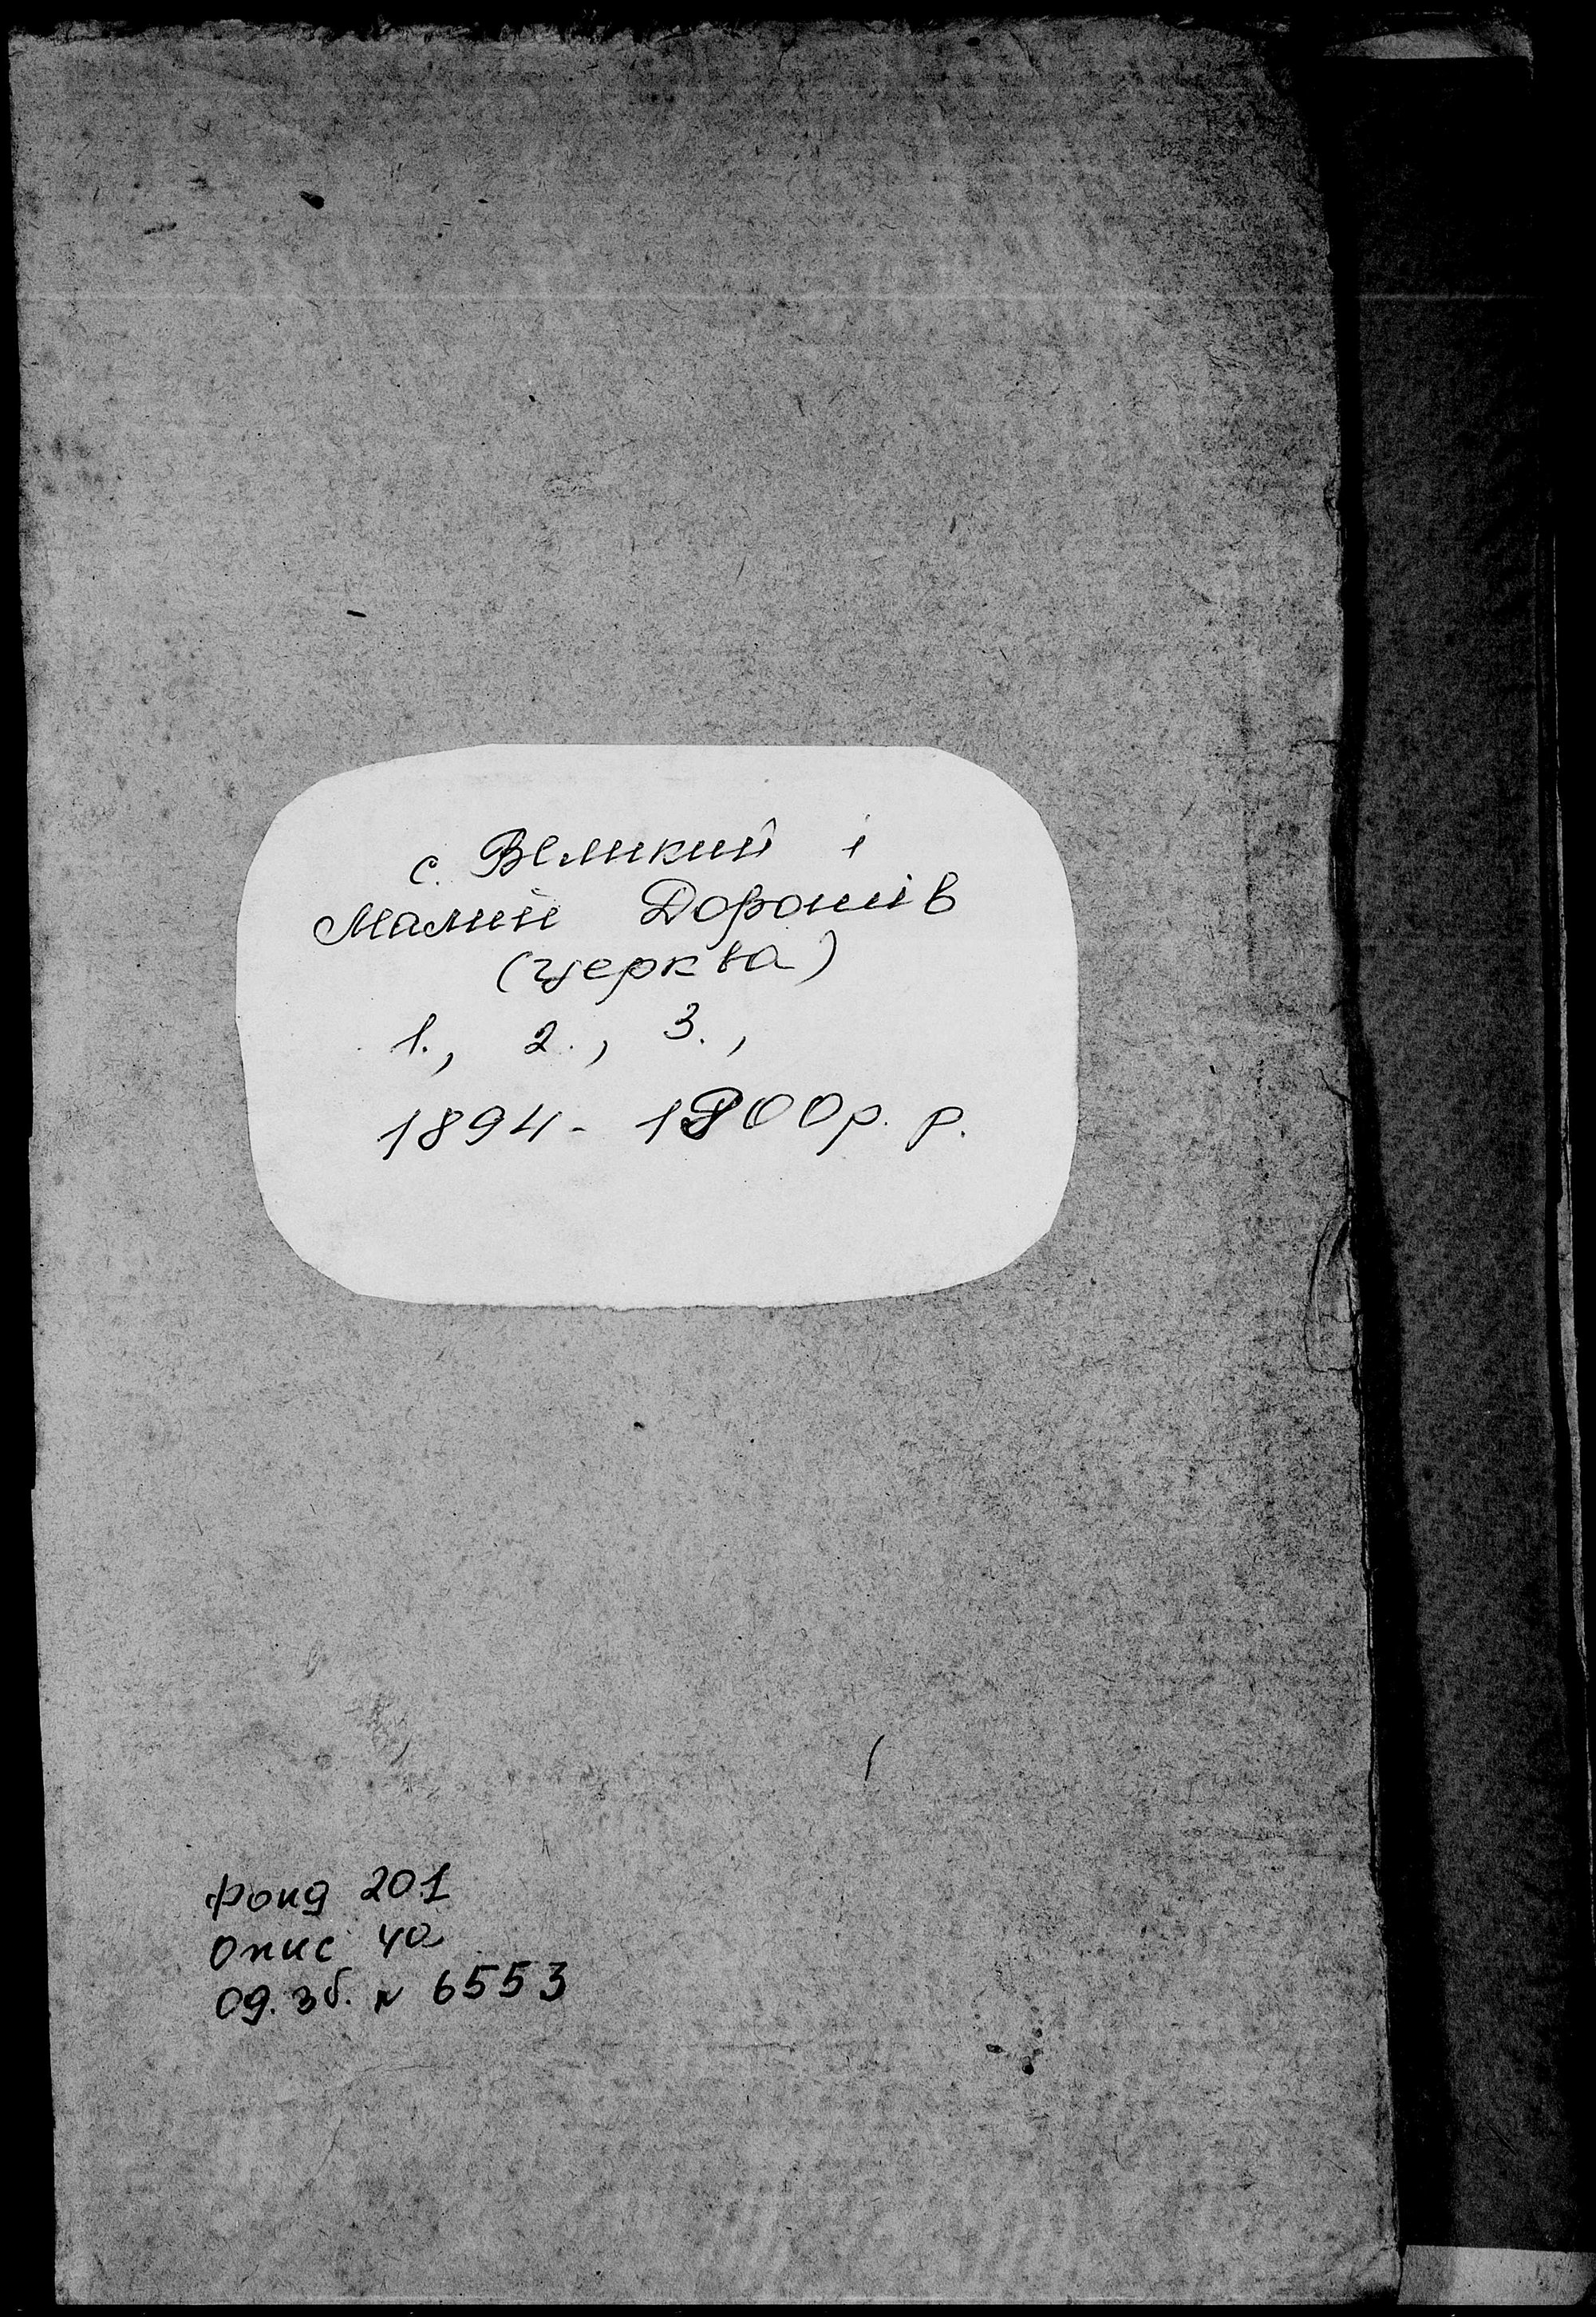 с. Великий і
Малий Дорошів
(церква)
1., 2., 3.,
1894 - 1900 р. р.
фонд 201
опис 4а
од. зб. N 6553